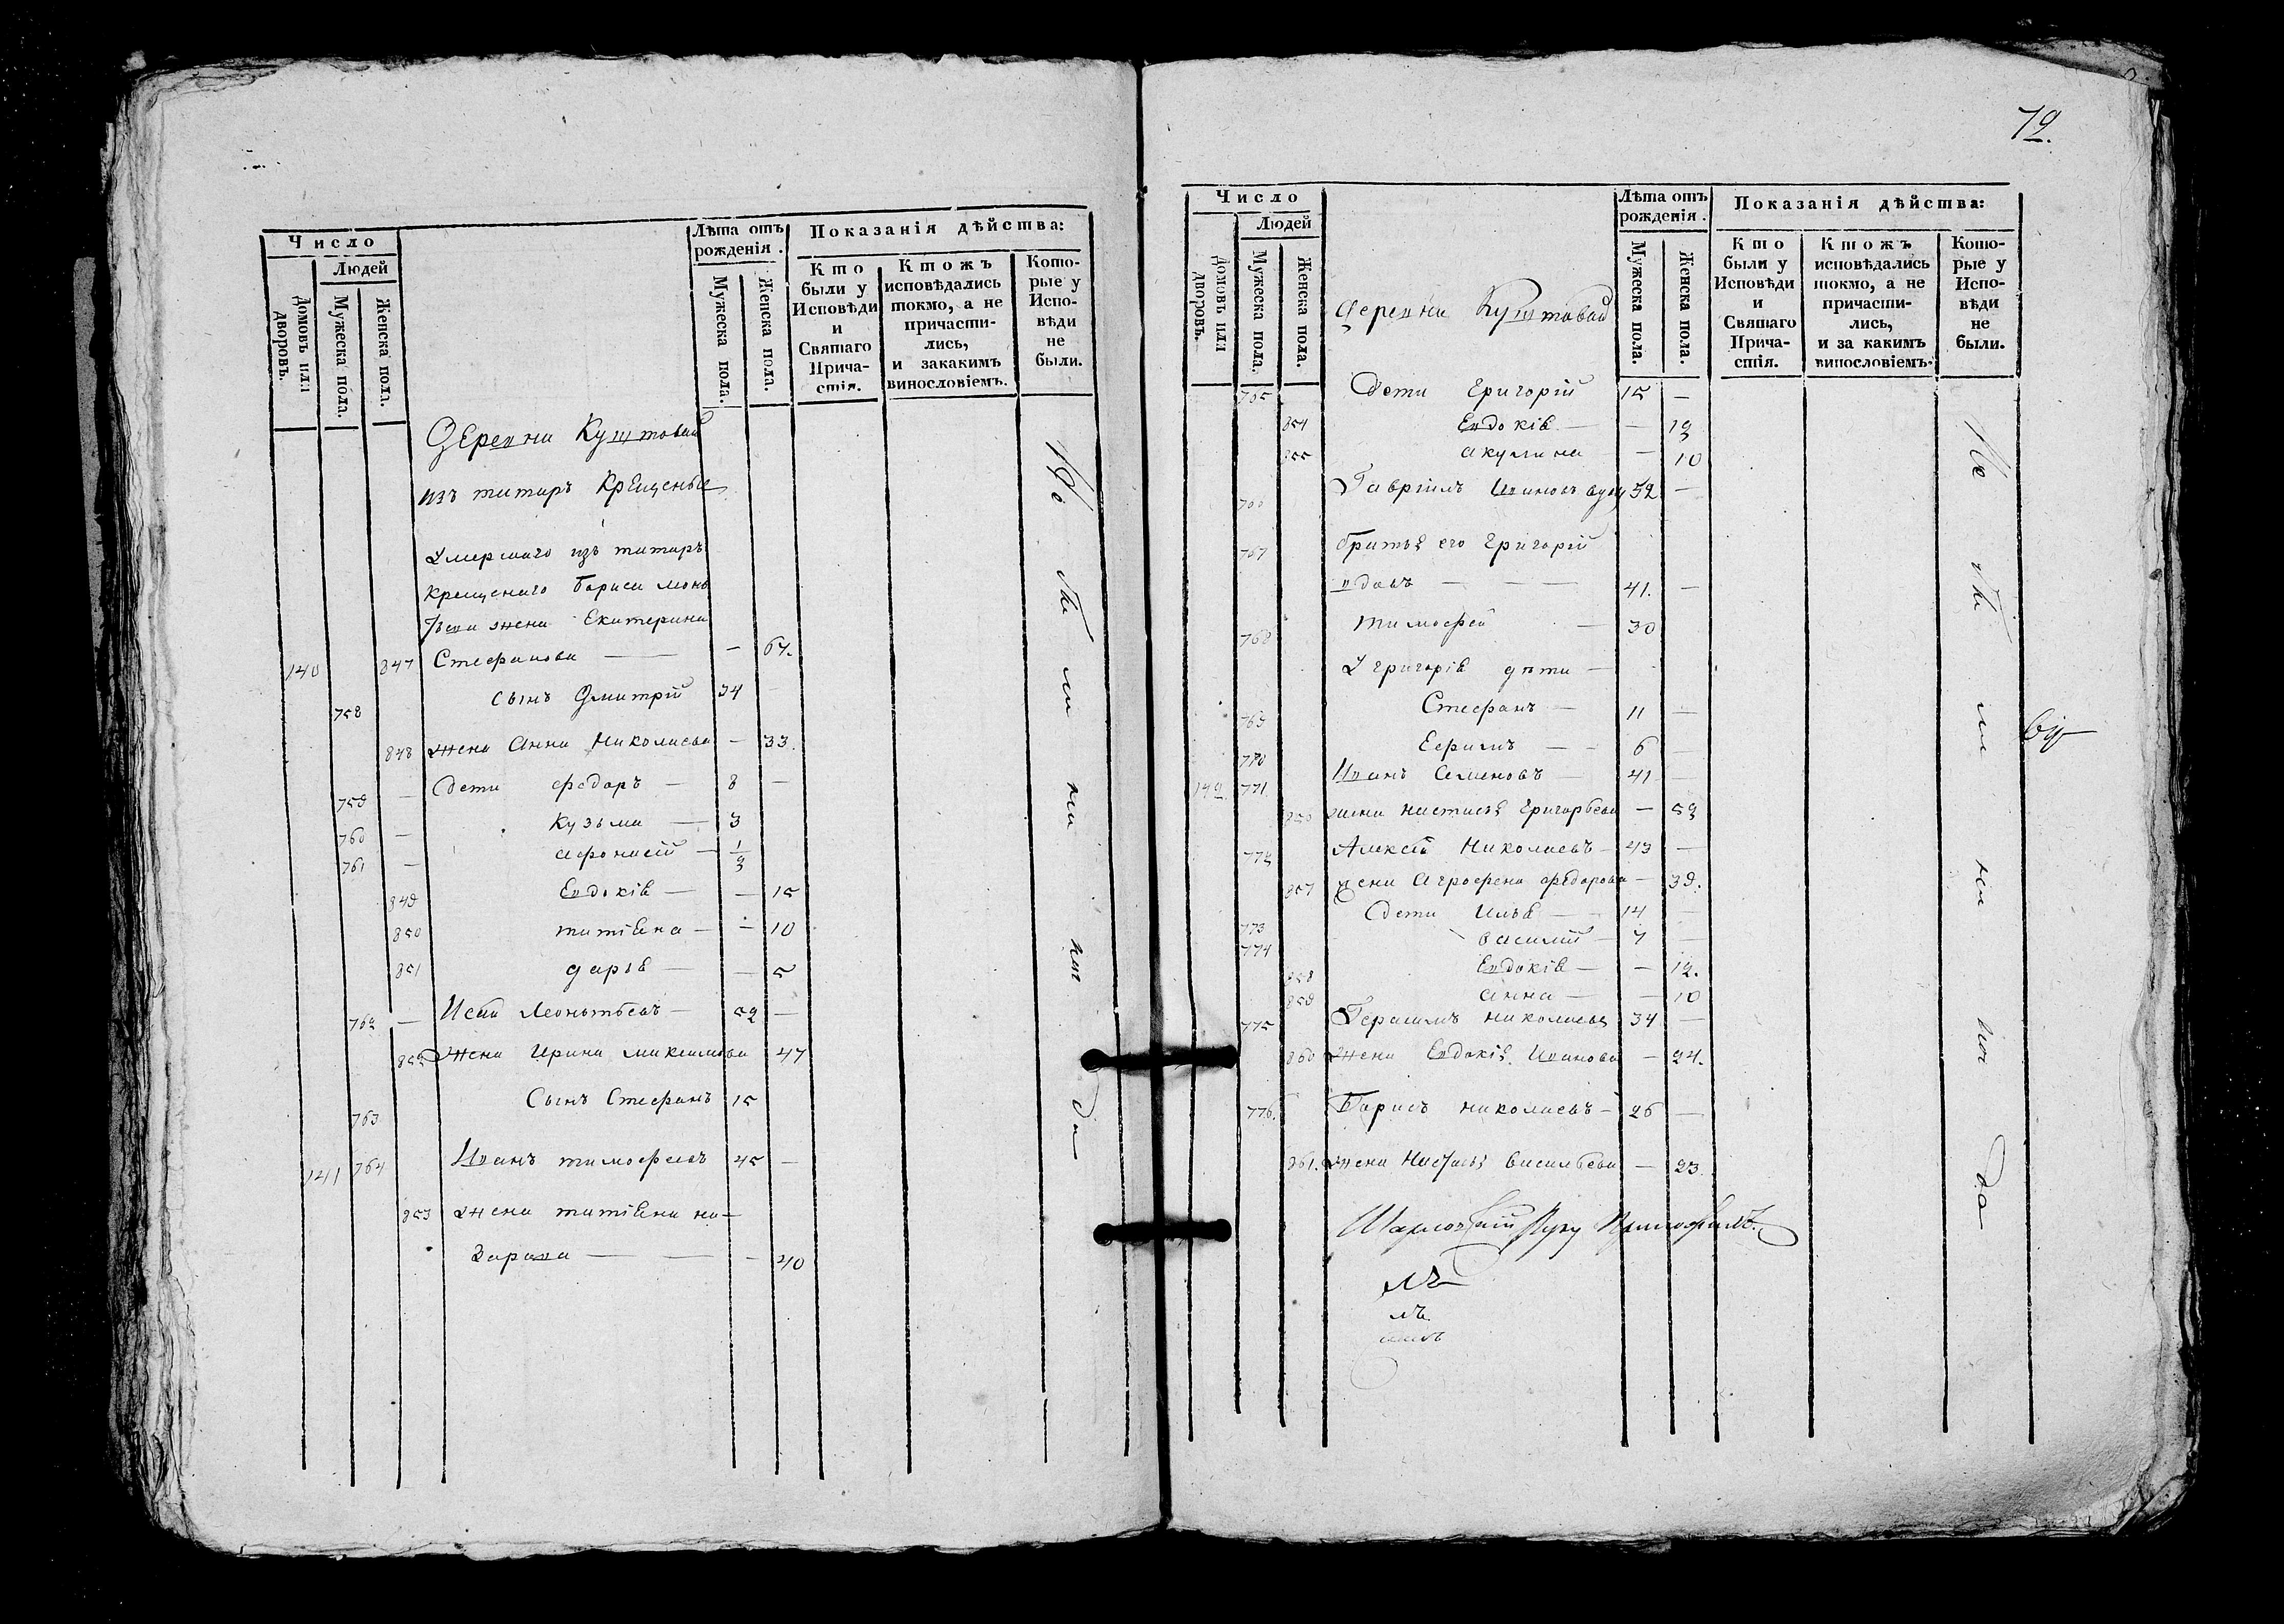 Число
Лѣта отъ рожденія.
Показанія дѣйства:
Людей
Домовъ или дворовъ.
Мужеска пола.
Женска пола.
Мужеска пола.
Женска пола.
Кто были у Исповѣди и Святаго Прича-стія.
Ктожъ исповѣдались токмо, а не причасти-лись, и закакимъ винословіемъ.
Кото-рые у Испо-вѣди не были.
Деревни Куштовай
изъ татаръ крещеные
Умершаго изъ татаръ
крещенаго Бориса
жена Екатерина
140 847 Стефанова — — 67.
758 сынъ Дмитрій 34 —
848 жена Анна Николаева — 33.
759 — Дети федоръ — 8 —
760 — Кузьма — 3
761 — афонасей — 1/2
849 Евдокія — — 15
850 татіяна — — 10
851 дарія — — 5
762 — Исай Леонтьевъ — 52 —
852 жена Ирина максимова 47
763 Сынъ Стефанъ 15
141 764 Иванъ тимофеевъ 45 —
853 жена татіяна на-
зарова — — — 40
72.
Число
Лѣта отъ рожденія.
Показанія дѣйства:
Людей
Домовъ или дворовъ.
Мужеска пола.
Женска пола.
Мужеска пола.
Женска пола.
Кто были у Исповѣди и Святаго Прича-стія.
Ктожъ исповѣдались токмо, а не причасти-лись, и за какимъ винословіемъ.
Кото-рые у Испо-вѣди не были.
Деревни Куштовай
765 Дети Григорій 15 —
854 Евдокія — — 12
855 акулина — 10
766 Гавріилъ Ивановъ 32 —
767 братья его Григорій
вдовъ — — 41. —
768 тимофей — 30
У григорія дѣти —
769 Стефанъ — 11 —
770 Ефимъ — — 6 —
142. 771 Иванъ Семеновъ — 41 —
856 жена настасья Григорьева — 52
772 Алексей Николаевъ — 43 —
857 жена Агрофена федорова — 39.
773 Дети Илья — 14 —
774 василій — 7 —
858 Евдокія — — 12.
859 анна — — 10
775 Герасимъ николаевъ 34 —
860 жена Евдокія Иванова — 24.
776. Борисъ николаевъ — 26 —
861. жена Настасья василь‌ева — 23
лъ
лъ